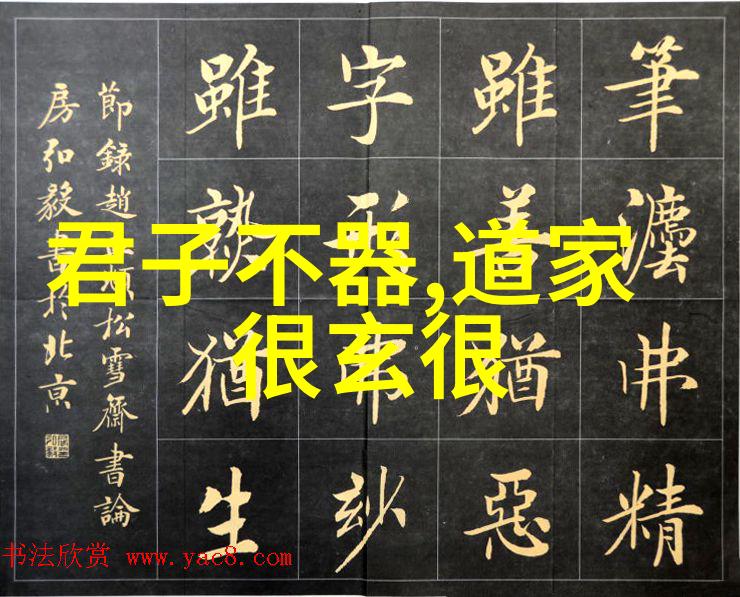 君子不器,道家
很玄很
筆灋弗精
雖善猶惡
字形弗玅
雖熟猶生
節錄趙孟頫松雪齋書論
房弘毅書於北京
书法欣赏 www.yac8.com